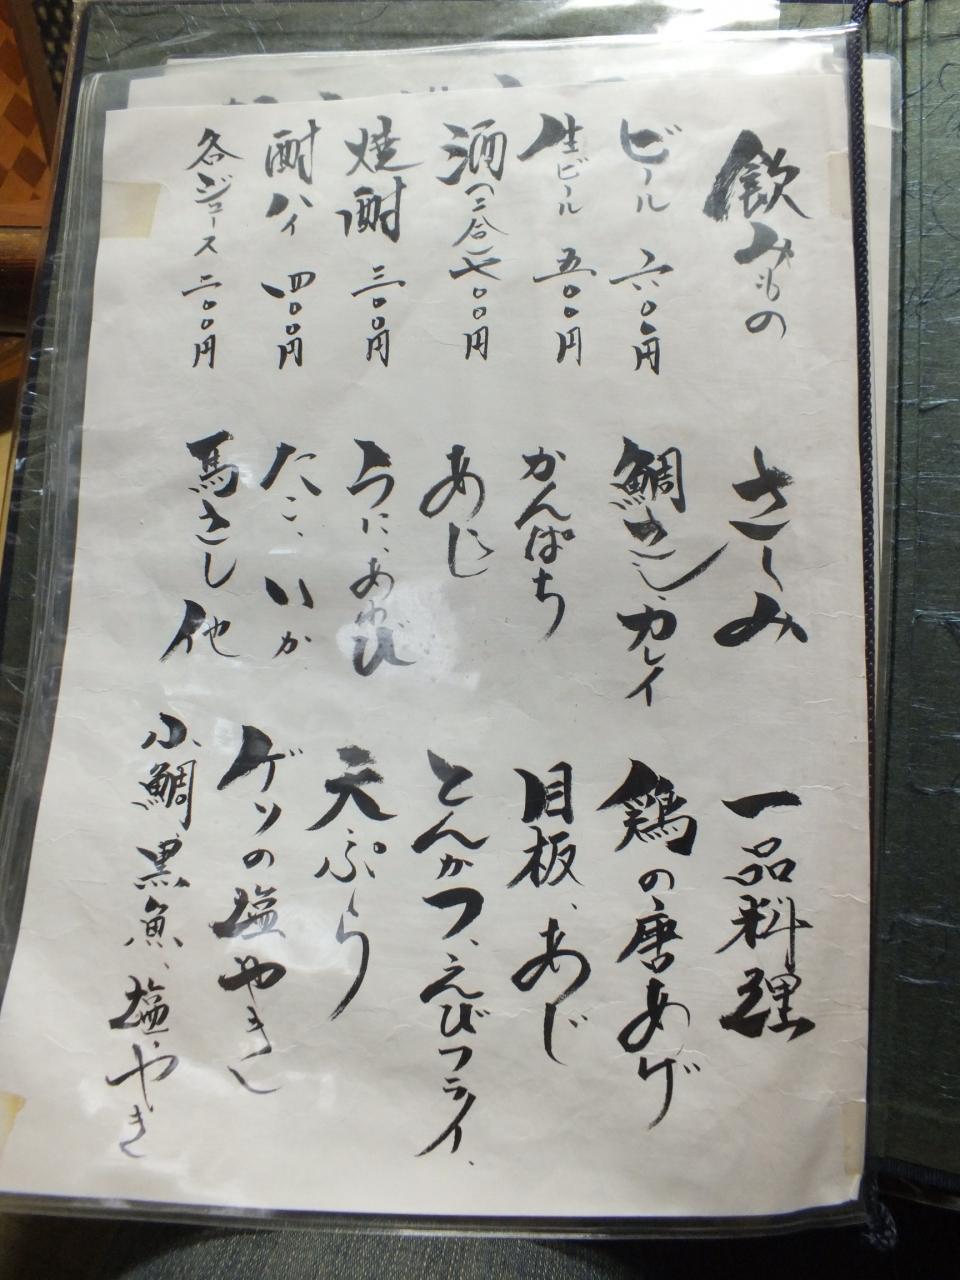 飲みもの
ビール 六〇〇円
生ビール 五〇〇円
酒(二合)七〇〇円
焼酎 三〇〇円
酎ハイ 四〇〇円
各ジュース 二〇〇円
さしみ
鯛さし、カレイ
かんぱち
あじ
うに、あわび
たこ、いか
馬さし 他
一品料理
鶏の唐あげ
目板、あじ
とんかつ、えびフライ、
天ぷら
ゲソの塩やき
小鯛、黒魚、塩やき